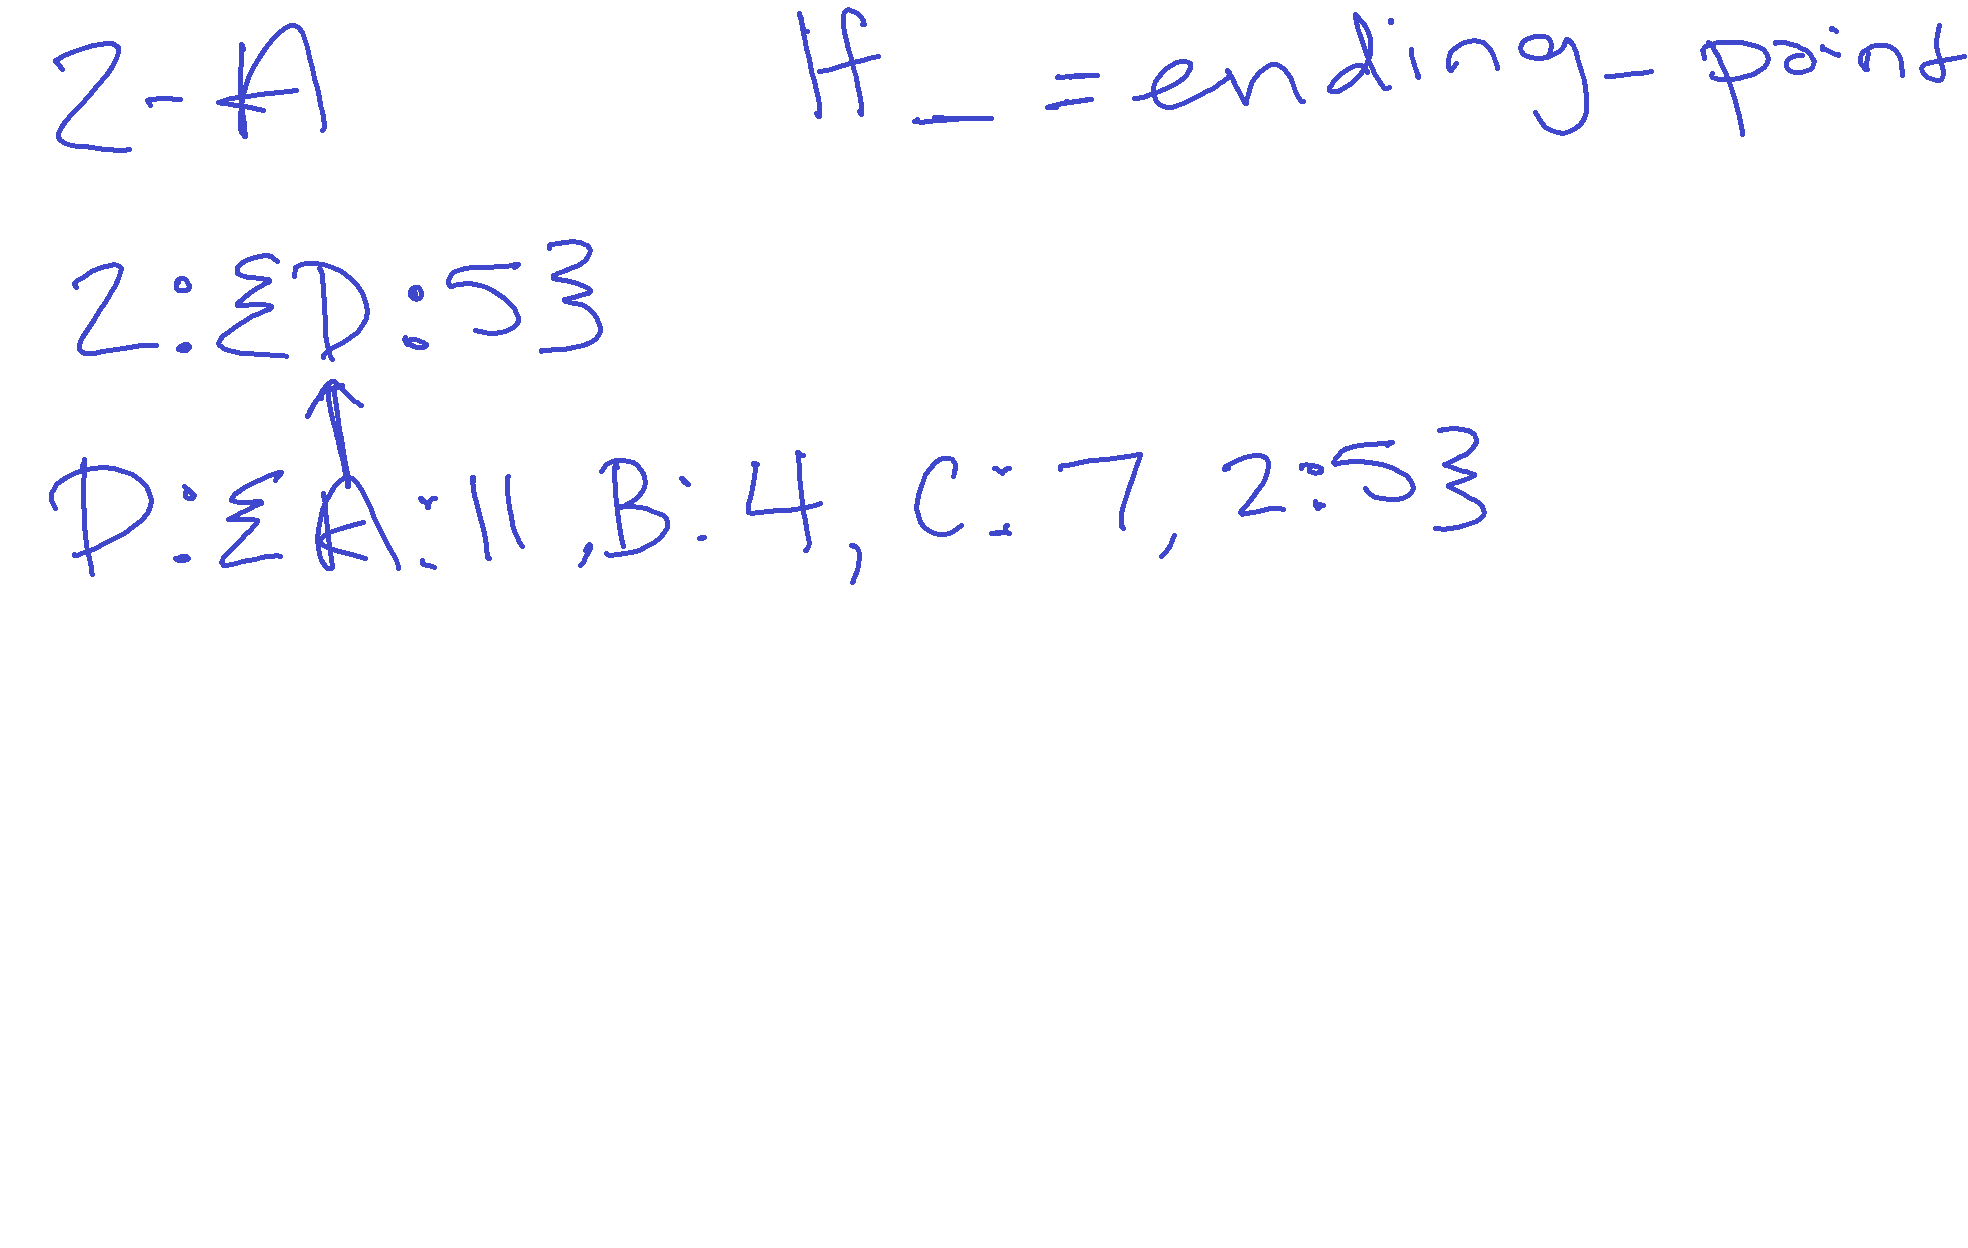 2-A
If _ = ending_point
2:{D:5}
D:{A:11,B:4,C:7,2:5}